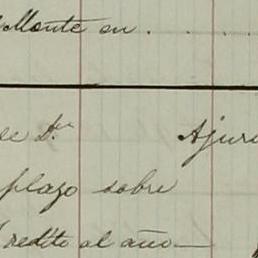 Monte en . . . .
de Dn Ajuri
plazo sobre
redito al año—